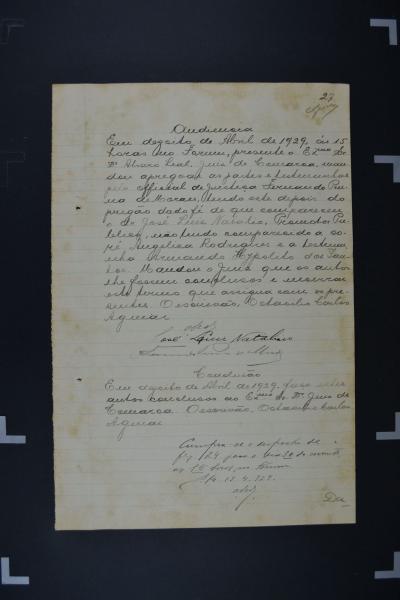 27
Audiencia
Em dezoito de Abril de 1929, ás 15
horas no Forum, presente o Exmo Sr.
Dr. Alvaro Leal, Juiz de Comarca, man
dou apregoar as partes e testemunhas
pelo official de Justiça Fernando
de Moraes, tendo este depois do
pregão dado fé de que compareceu
o Dr. José Luis Natalio, Promotor Pu
blico, não tendo comparecido a co-
ré Angelica Rodrigues e a testemu
nha Armando Hypolito dos San
tos. Mandou o Juiz que os autos
lhe fossem conclusos e encerrou
este termo que assigna com os pre
sentes. O escrivão, Octacilio Castos
Aguiar
José Luis Natalio
Conclusão
Em dezoito de Abril de 1929, faço estes
autos conclusos ao Exmo Sr. Dr. Juiz de
Comarca. O escrivão, Octacilio Castos
Aguiar
Cumpra-se o disposto de
fls. 24, para o dia 20 do corrente
as 15 horas, no Forum
18.4.929.